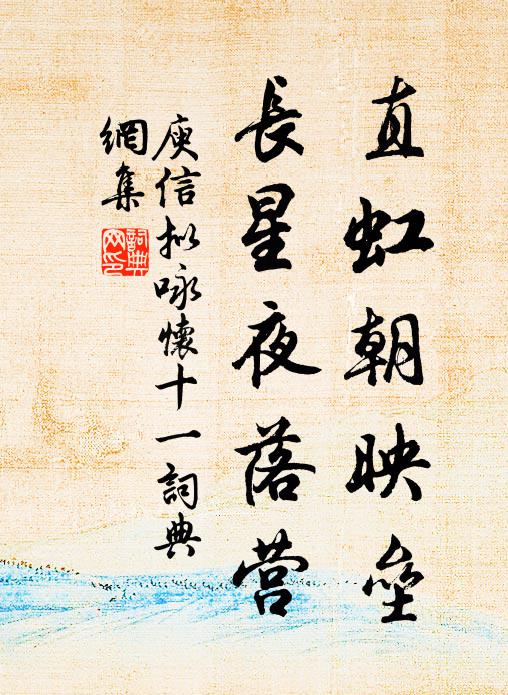 直虹朝映垒
長星夜落营
庾信拟咏懷十一詞典
網集
詞典
网印